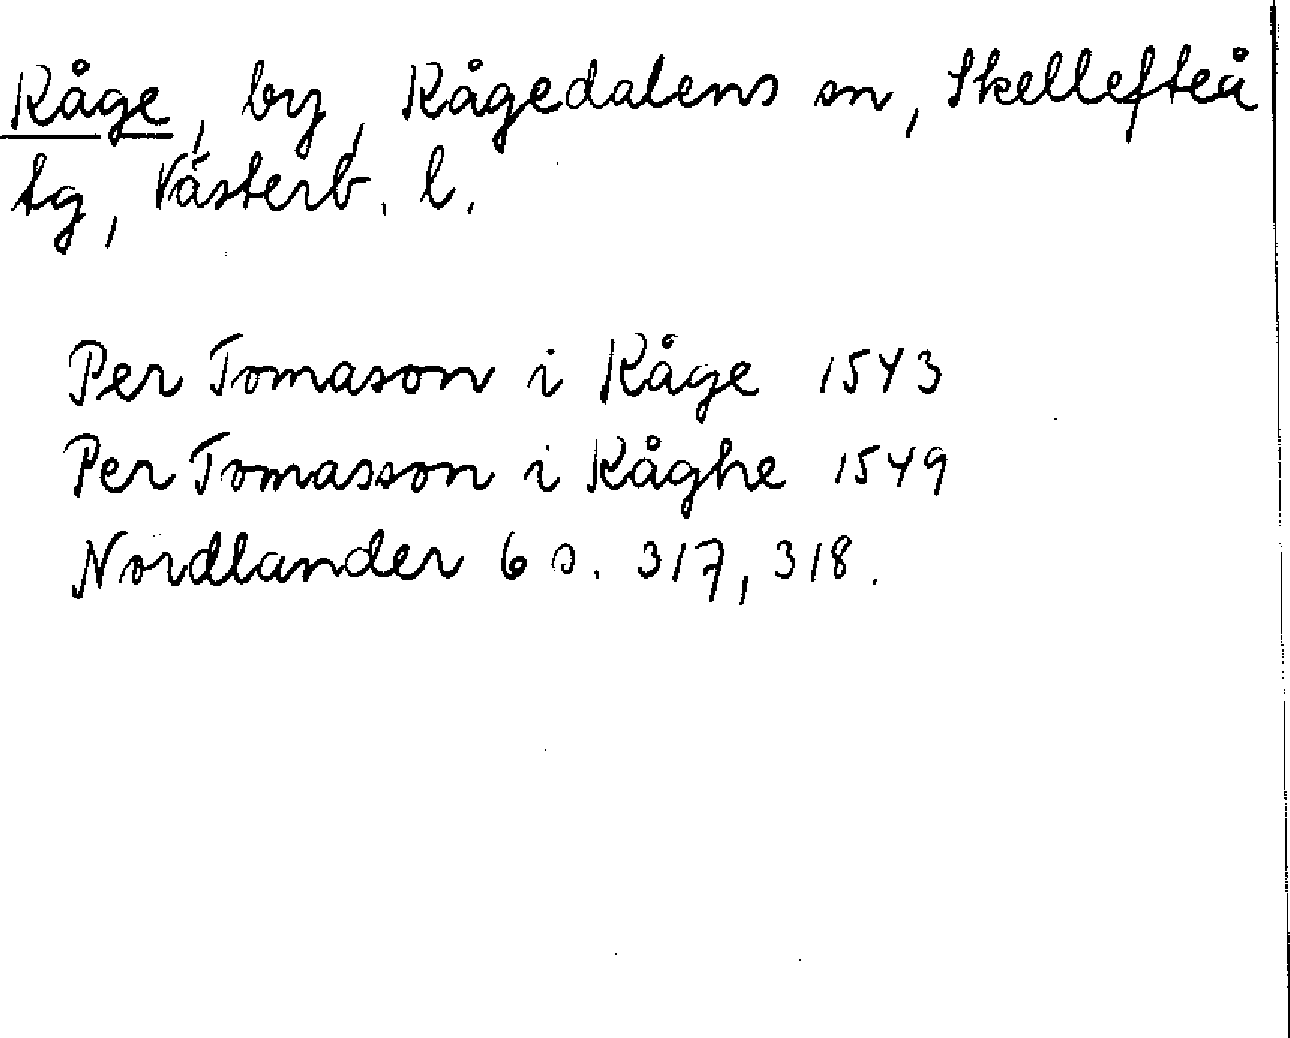 Kåge, by, Kågedalens sn, Skellefteå
tg, Västerb. l.
Per Tomason i Kåge 1543
Per Tomasson i Kåghe 1549
Nordlander 6 s. 317, 318.